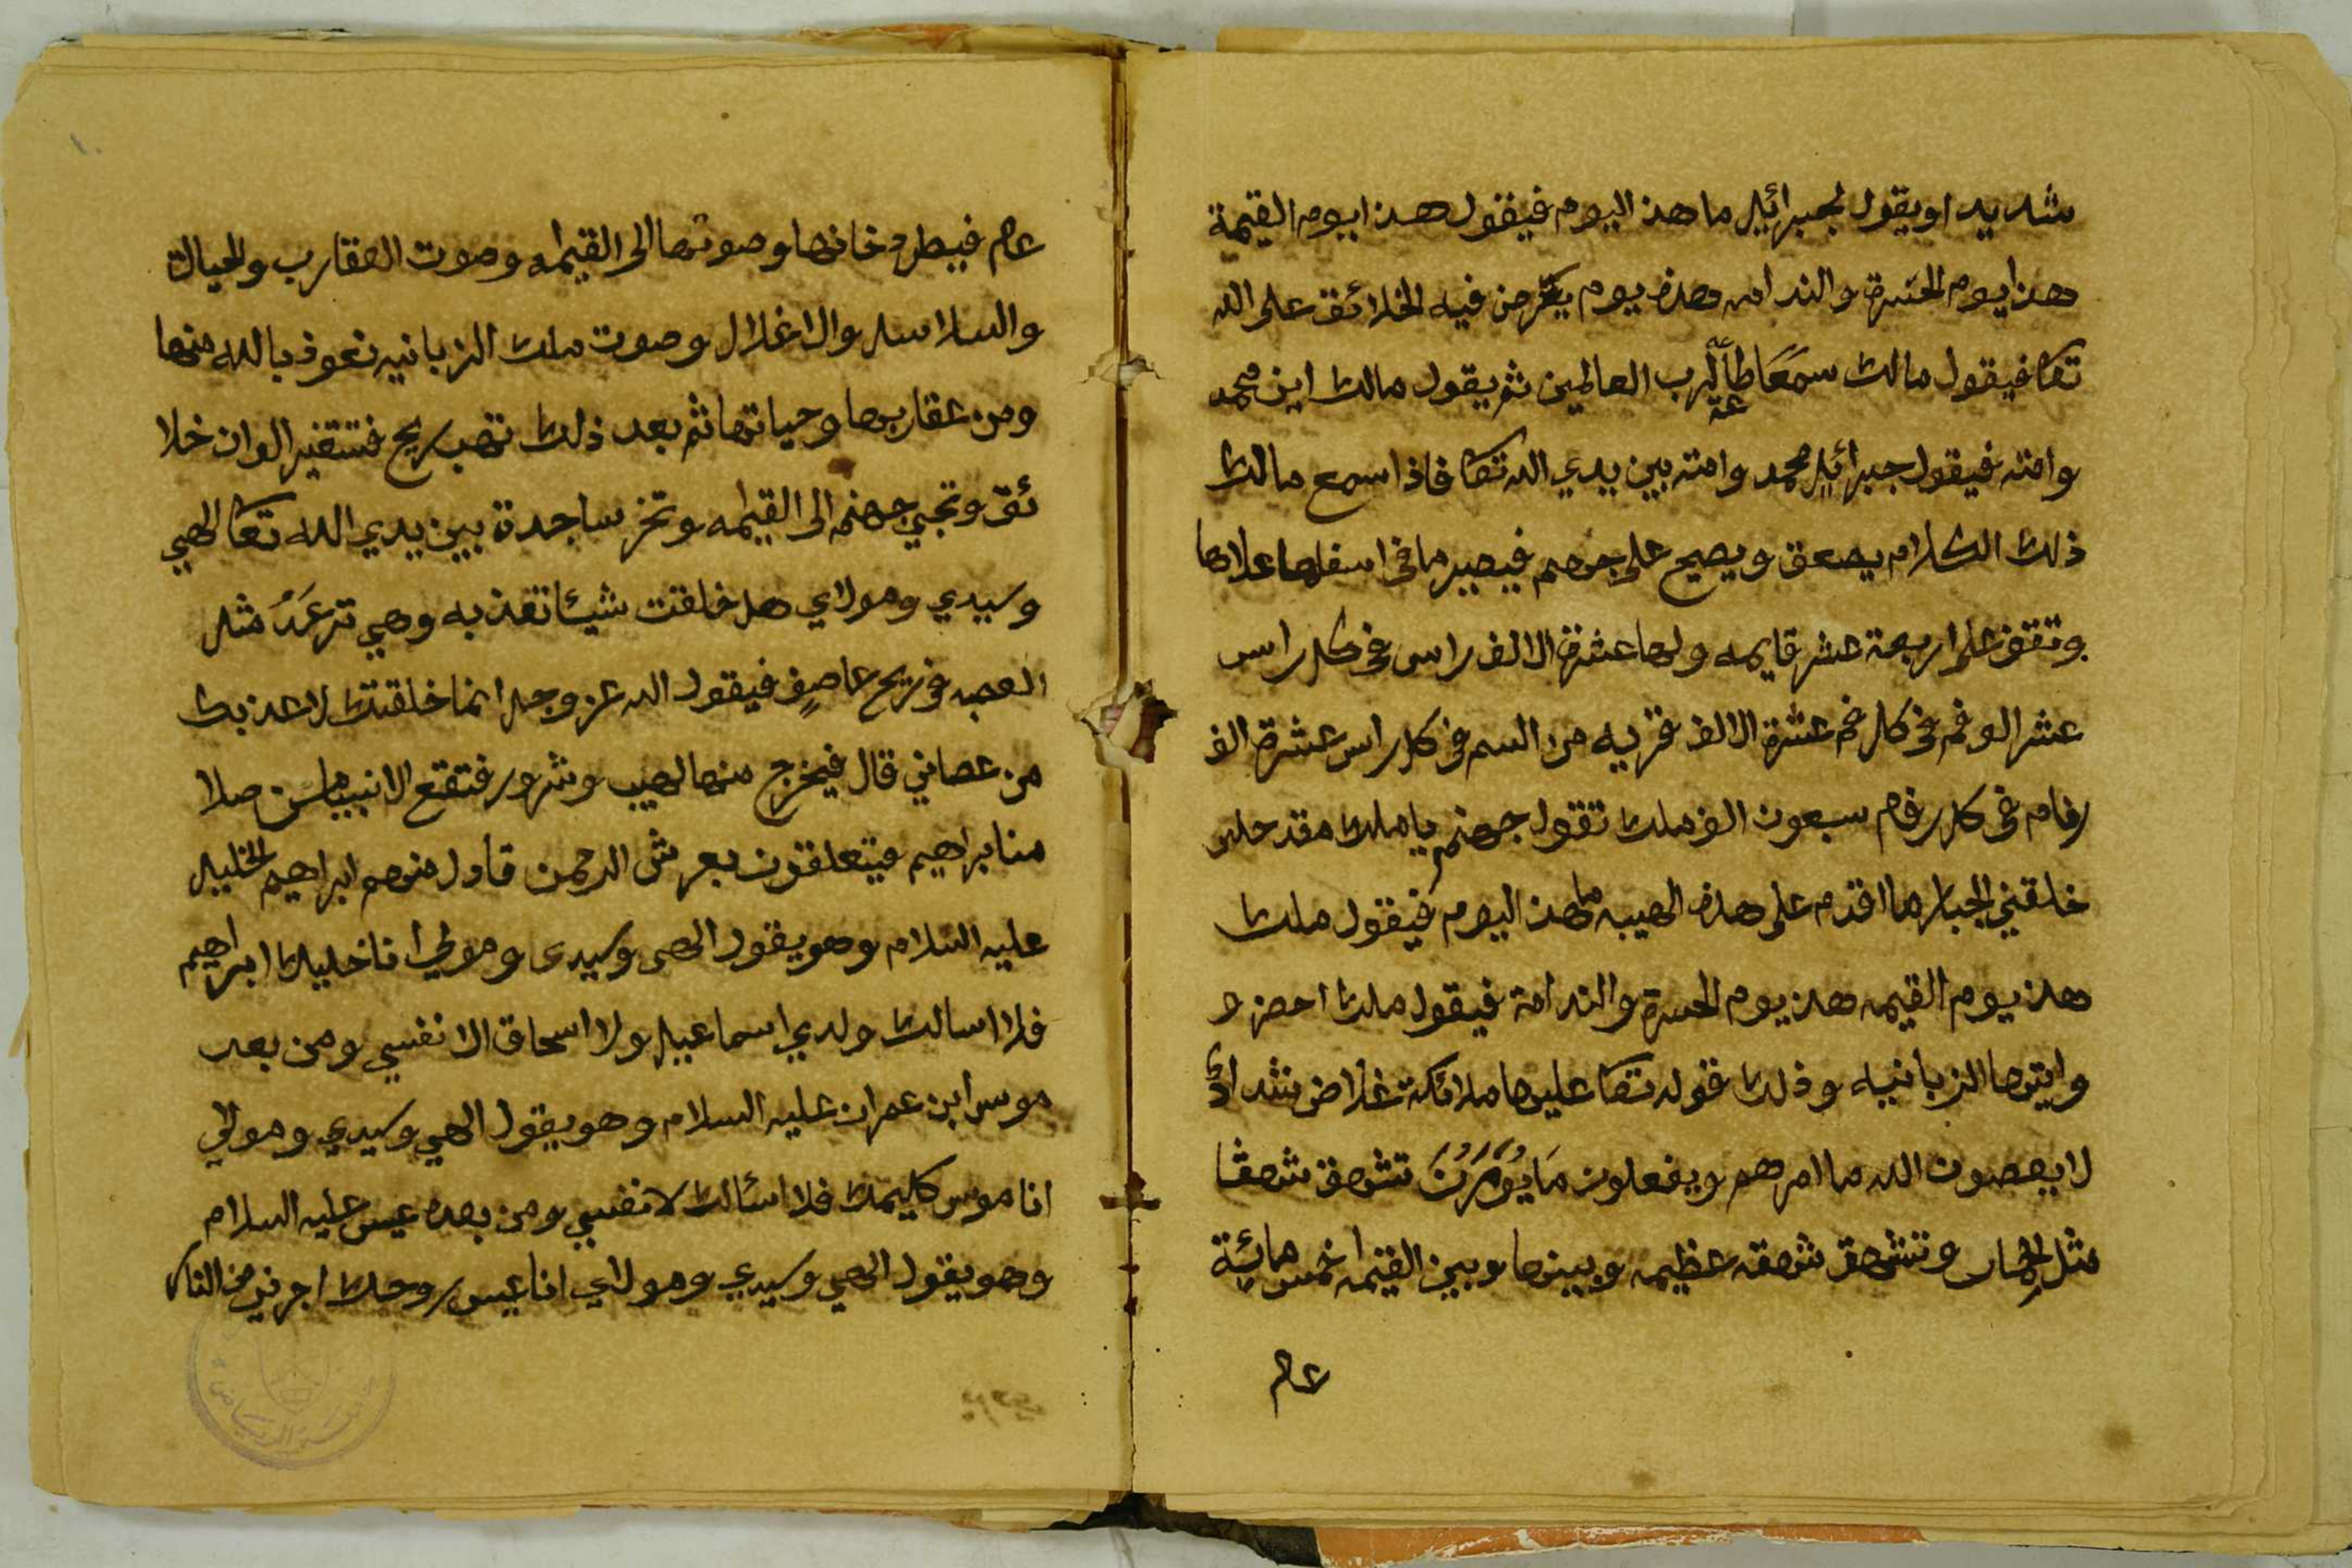 شديد اويقول لجبرائيل ما هذ اليوم فيقول هذا ايوم القيمة
هذا يوم الحسرة والندامه وهذه يوم يعرض فيه الخلائق على الله
تعا فيقول مالك سمعا طاعة لرب العالمين ثم يقول مالك اين محمد
وامته فيقول جبرائيل محمد وامته بين يدي الله تعا فاذا سمع مالك
ذلك الكلام يصعق ويصيح على جهنم فيصير ما في اسفلها علاها
وتقف على اربعة عشر قايمه ولها عشرة الالف راس في كل راس
عشر الوفم في كل فم عشرة الالف قربه من السم في كل راس عشرة الف
رفام في كل رفام سبعون الف ملك تقول جهنم يا ملك مقد حلى
خلقني الجبار ما اقدم على هذه الهيبه ما هذ اليوم فيقول ملك
هذ يوم القيمه هذ يوم الحسرة والندامة فيقول ملك احضر و
وايتها الزبانيه وذلك قوله تعا عليها ملائكة غلاض شداد
لا يعصون الله ما امرهم ويفعلون ما يومرن تشهق شهقا
مثل الحمار وتشهق شهقه عظيمه وبينها وبين القيمه خمس مائية
عام
عام فيطر دخانها وصوتها الى القيمه وصوت العقارب والحيالة
والسلاسل والاغلال وصوت ملك الزبانيه نعوذ بالله منها
ومن عقاربها وحياتها ثم بعد ذلك تهب ريح فتتغير الوان خلا
ئق وتجي جهنم الى القيمه وتخر ساجدة بين يدي الله تعا الهي
وسيدي ومولاي هل خلقت شيئا تعذ به وهي ترعد مثل
العصبه في ريح عاصف فيقول الله عز وجل انما خلقتك لاعذ بك
من عصاني قال فيخرج منها لهيب وشرور فتقع الانبيا من صلا
منابراهيم فيتعلقون بعرش الرحمن فاول منهم ابراهيم الخليل
عليه السلام وهو يقول الهي وسيدي ومولي انا خليلك ابراهيم
فلا اسالك ولدي اسماعيل ولا اسحاق الا نفسي ومن بعد
موسى ابن عمران عليه السلام وهو يقول الهي وسيدي ومولي
انا موسى كليمك فلا اسئالك لا نفسي ومن بعده عيسى عليه السلام
وهو يقول الهي وسيدي ومولاي انا عيسى روحك اجرني من النار